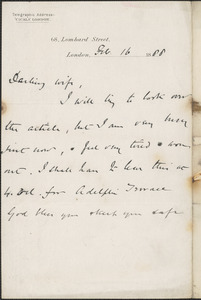 Telegraphic Address
68, Lombard Street,
London, Feb 16 1888
Darling wife,
I will try to look over
the article, but I am very busy
just now, & feel very tired & worn
out. I shall have to leave this at
4. for Adelphi Terrace
God bless you & keep you safe